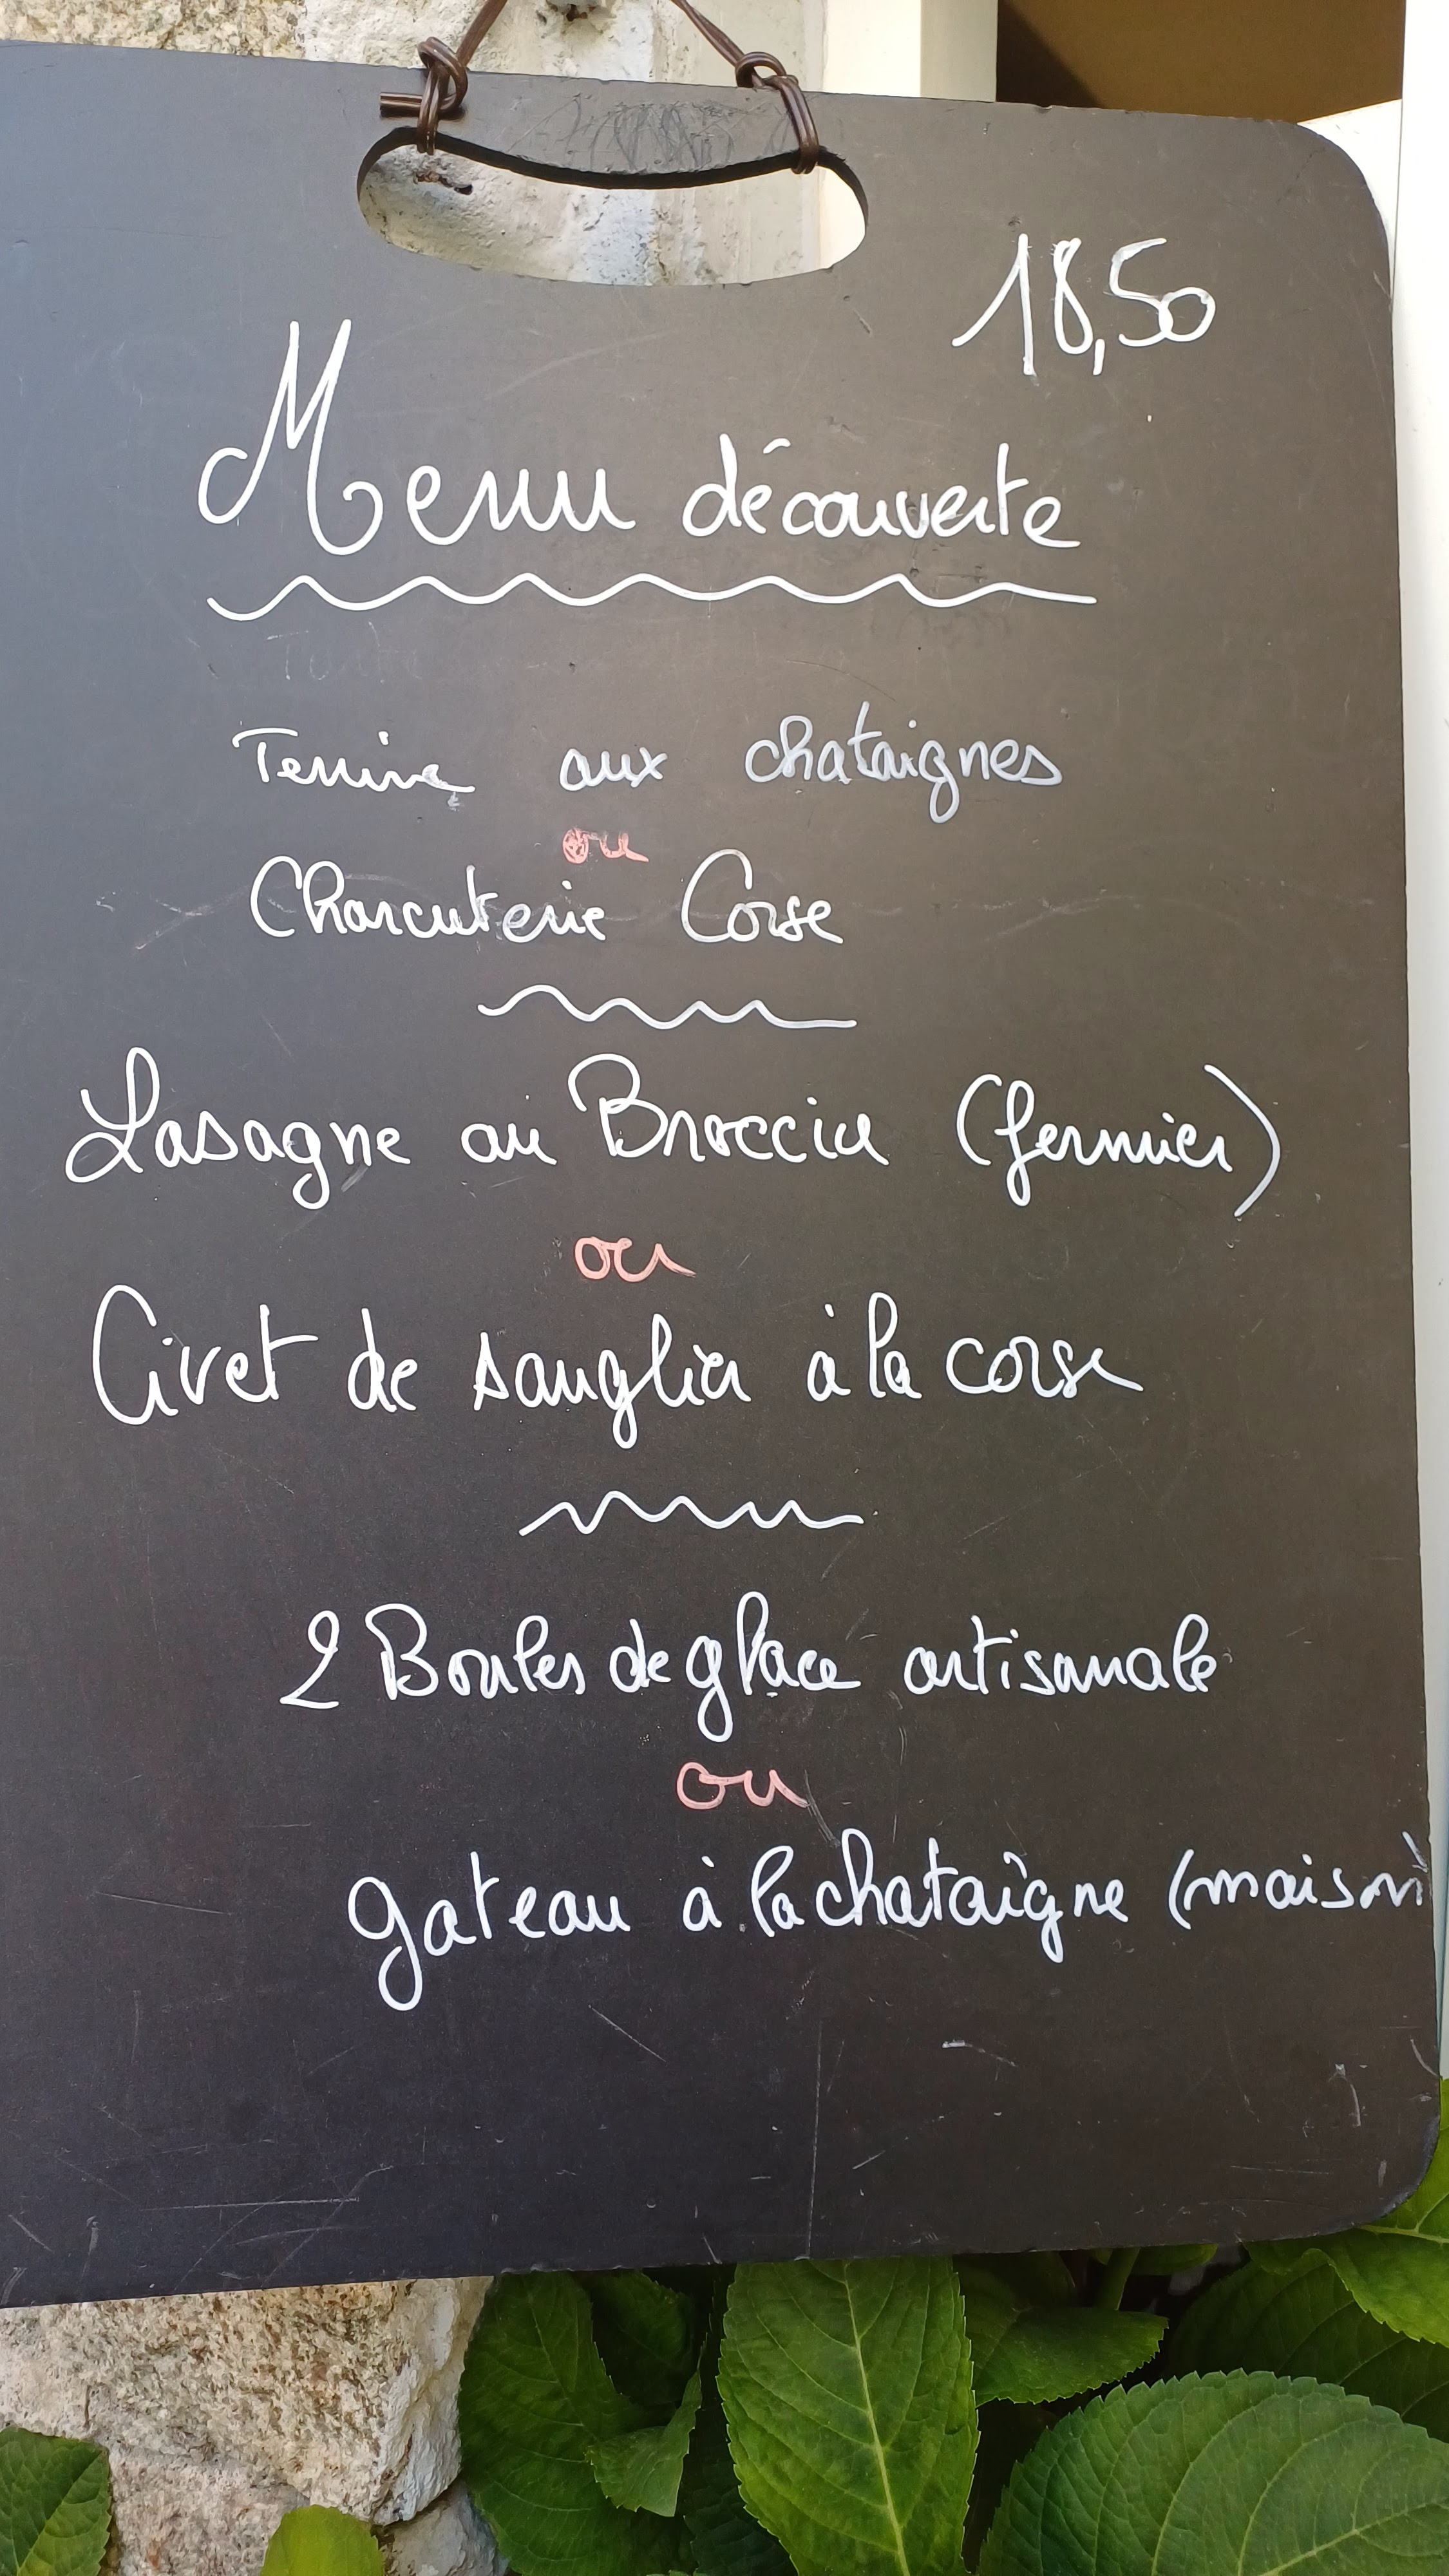 18,50
Menu découverte
Terrine aux chataignes
ou
Charcuterie Corse
Lasagne au Brocciu (fermier)
ou
Civet de sanglier à la corse
2 Boules de glace artisanale
ou
gateau à la chataîgne (maison)